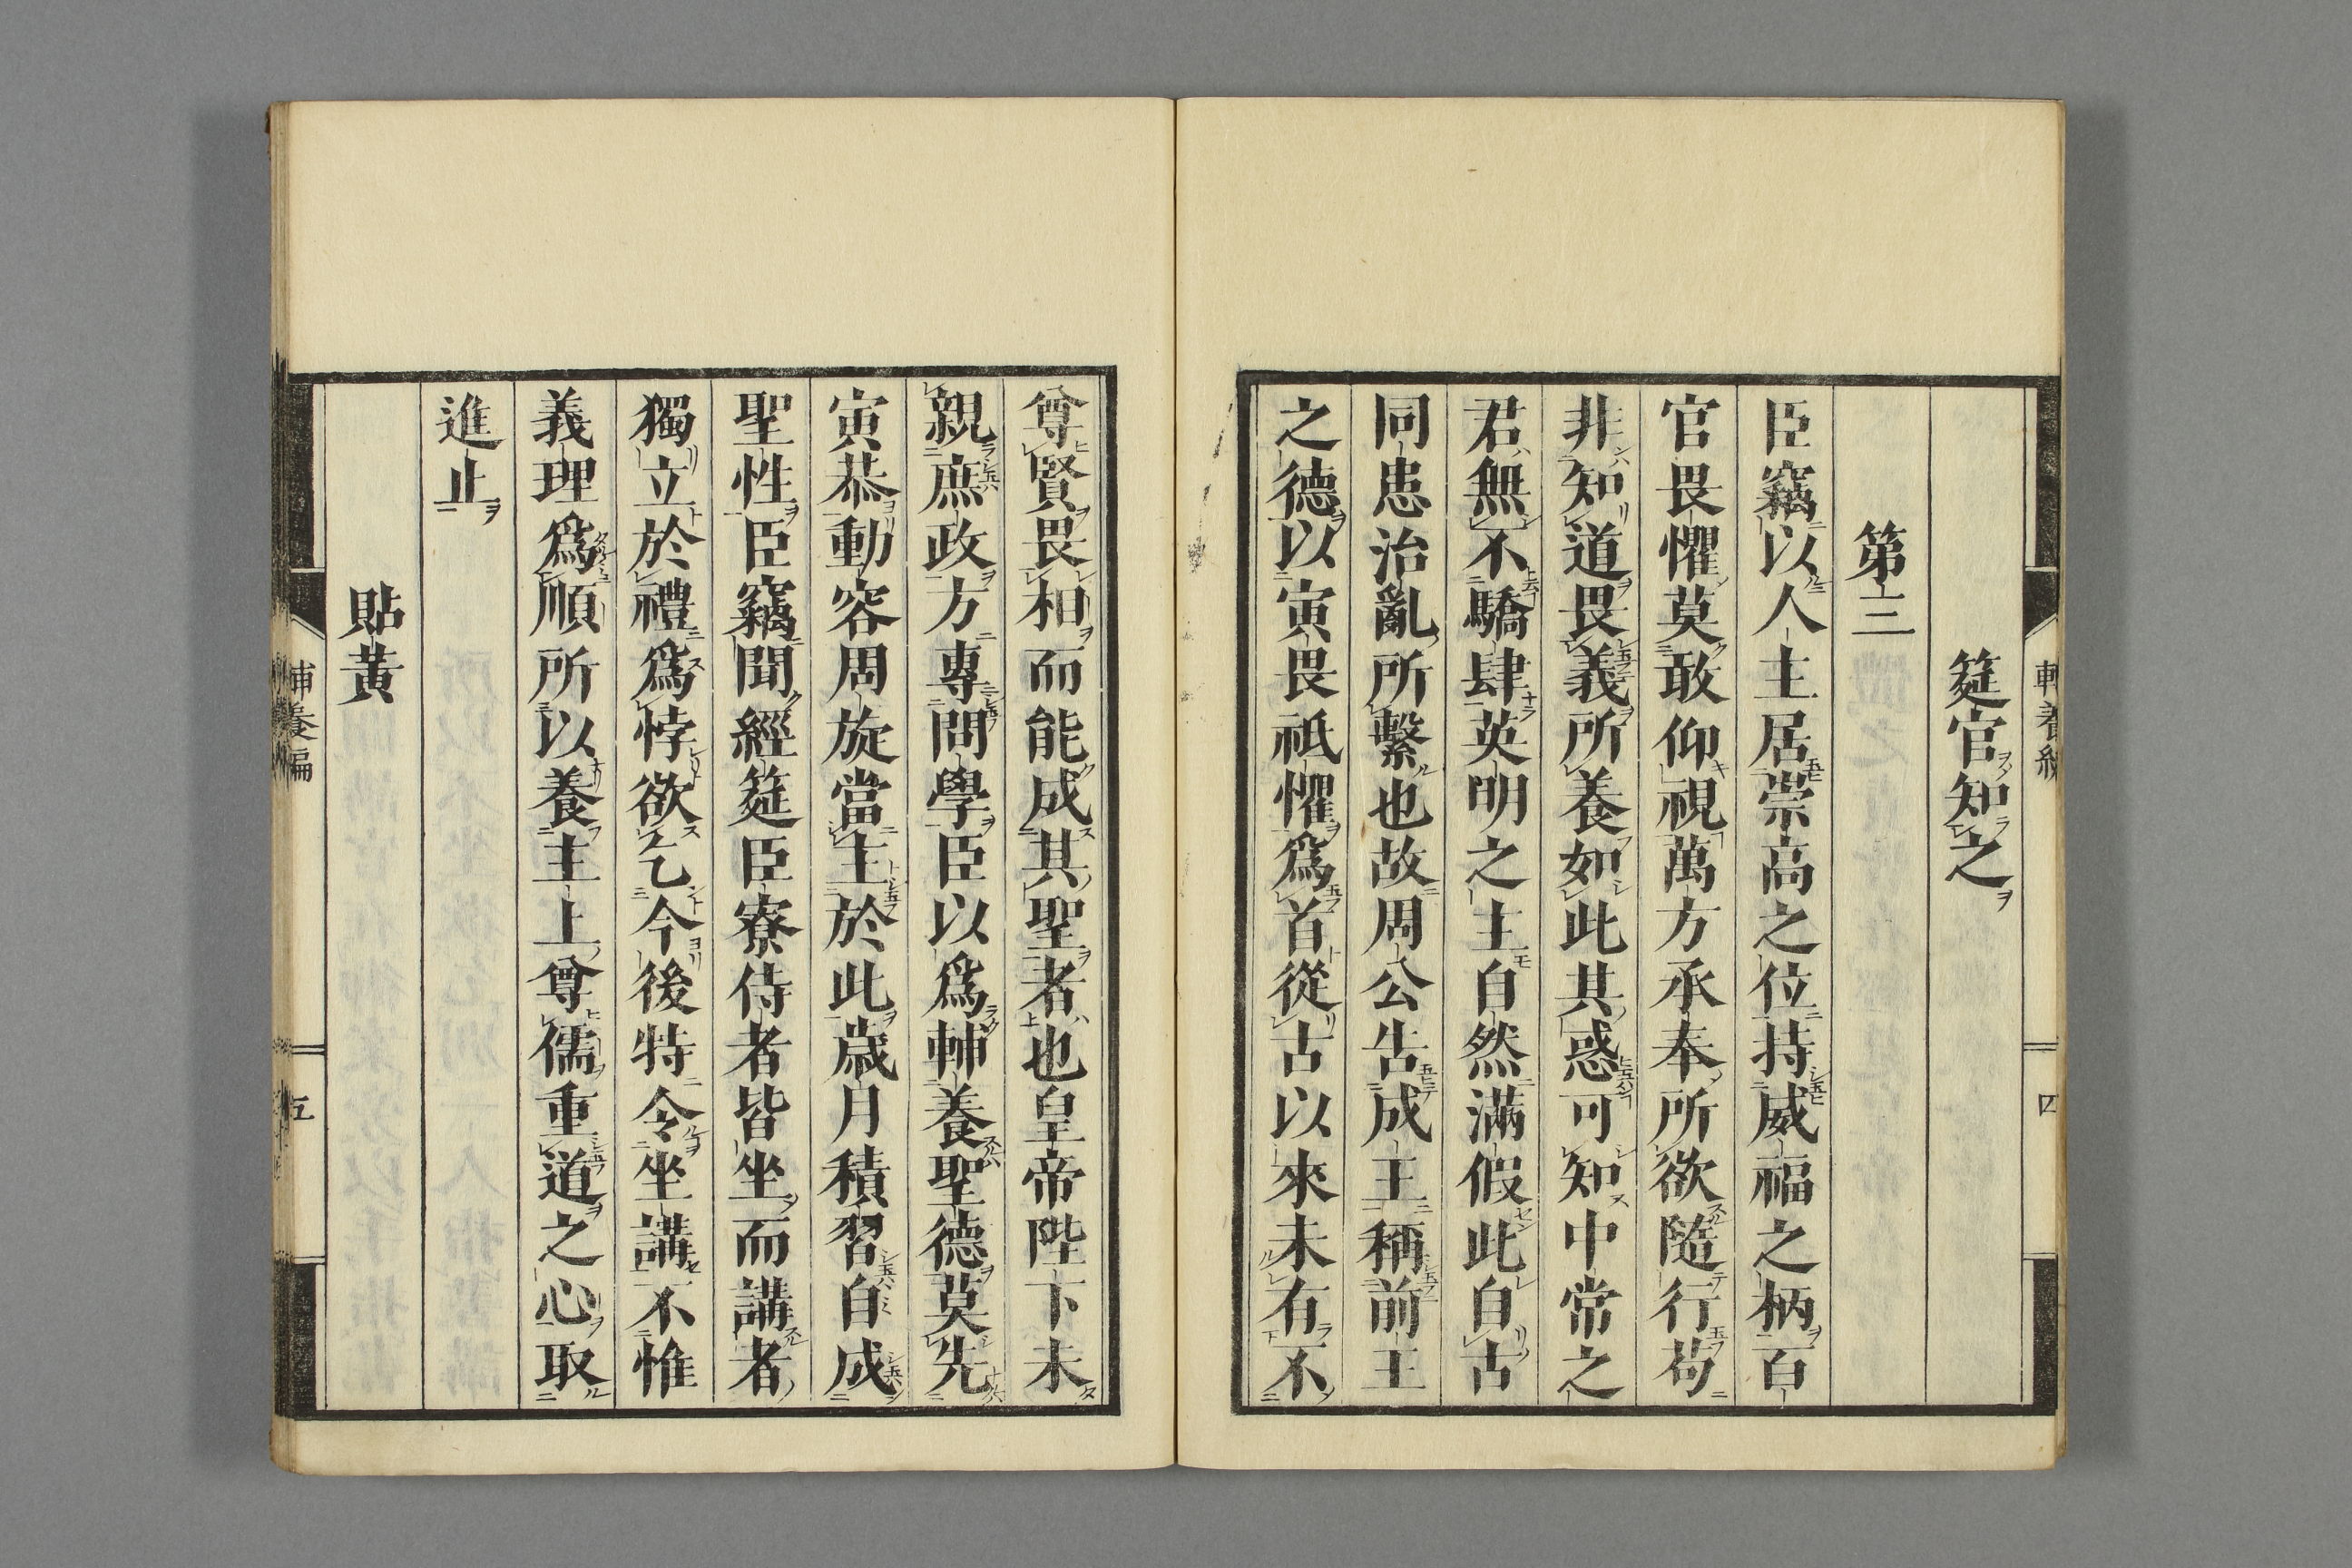 筵官知之
第三
臣竊以人主居崇高之位持威福之柄百
官畏懼莫敢仰視萬方承奉所欲隨行苟
非知道畏義所養如此其惑可知中常之
君無不驕肆英明之主自然滿假此自古
同患治亂所繫也故周公告成王稱前王
之德以寅畏祇懼爲首從古以來未有不
尊賢畏相而能成其聖者也皇帝陛下未
親庶政方專問學臣以爲輔養聖德莫先
寅恭動容周旋當主於此歲月積習自成
聖性臣竊聞經筵臣寮侍者皆坐而講者
獨立於禮爲悖欲乞今後特令坐講不惟
義理爲順所以養主上尊儒重道之心取
進止
貼黄
補養編
五